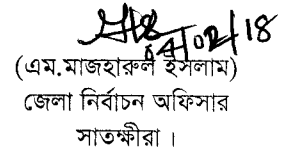 04/02/18
(এম.মাজহারুল ইসলাম)
জেলা নির্বাচন অফিসার
সাতক্ষীরা ।